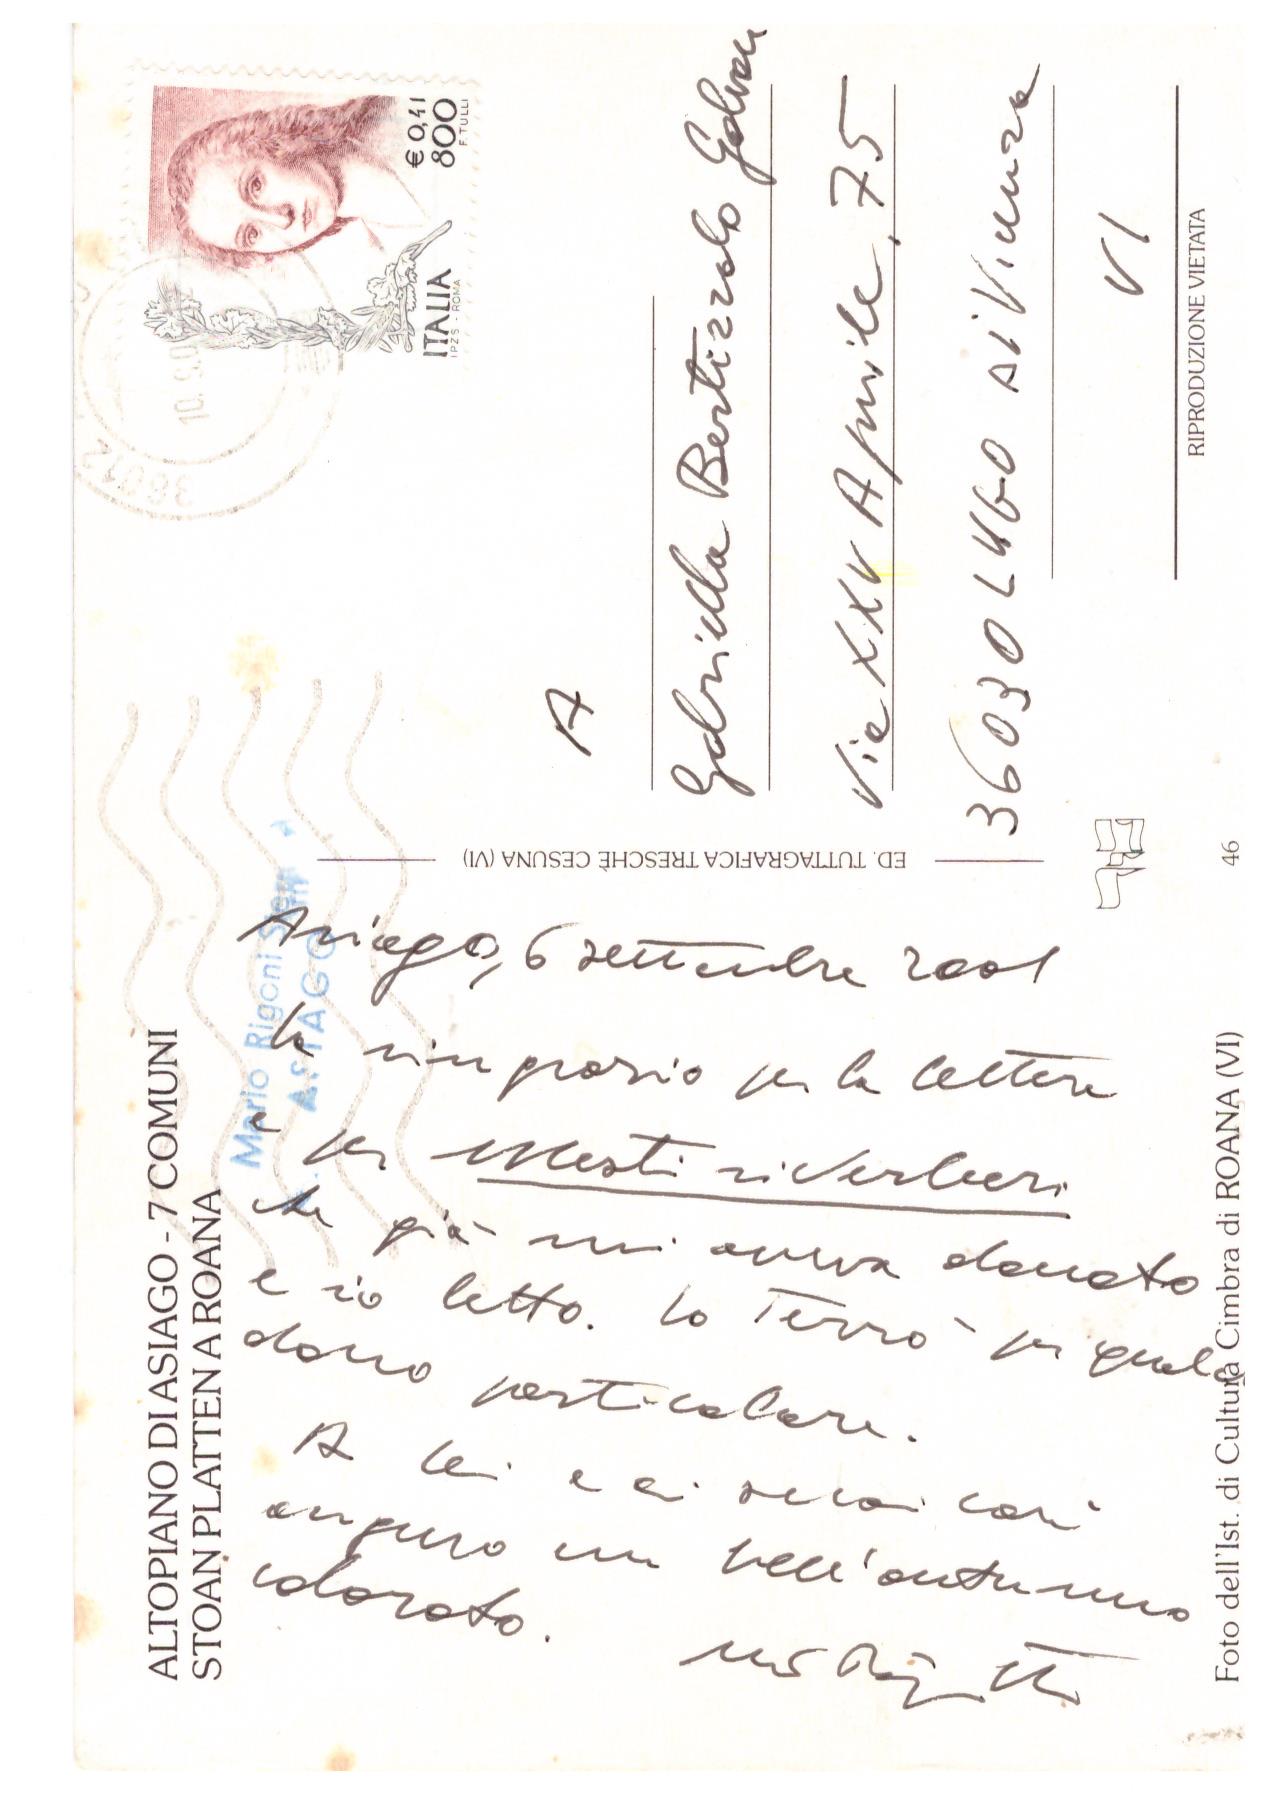 ALTOPIANO DI ASIAGO - 7 COMUNI
STOAN PLATTEN A ROANA
Mario Rigoni Stern
ASIAGO
Asiago, 6 settembre 2001
la ringrazio per la lettera
e per Mesti riverberi
che già mi aveva donato
e io letto. Lo terrò per quale
dono particolare.
A lei e ai suoi cari
auguro un bell'autunno
colorato.
Foto dell'Ist. di Cultura Cimbra di ROANA (VI)
46
ED. TUTTAGRAFICA TRESCHÈ CESUNA (VI)
36012
10.9.0
ITALIA
IPZS - ROMA
€ 0,41
800
F. TULLI
A
Gabriella Bertizzolo
Via XXV Aprile, 75
36030 LUGO di Vicenza
VI
RIPRODUZIONE VIETATA